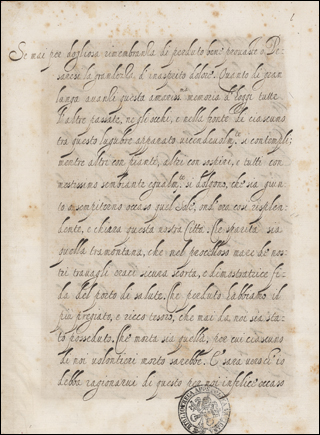 Se mai per dogliosa rimembranza di perduto bene prevalse o
la grandezza, d'inasprito dolore. Quanto di gran
lunga avanzi questa memoria d'hoggi tutte
l'altre passate, ne gli occhi, e nella fronte di ciascuno
tra questo lugubre apparato si contempli;
mentre altri con pianti, altri con sospiri, e tutti con
mestissimo sembiante si dolgono, che sia giun
to a sempiterno occaso quel Sole, ond'era così risplen
dente, e chiara questa nostra Città. Che sparita sia
quella tramontana, che nel procelloso mare de nos
tri travagli era scorta, e dimostratrice fi
da del porto di salute. Che perduto habbiamo il
più pregiato, e ricco tesoro, che mai da noi sia sta
to posseduto. Che morta sia quella, per cui ciascuno
di noi volontieri morto sarebbe. E sarà io
debba ragionarvi di questo per noi infelice occaso